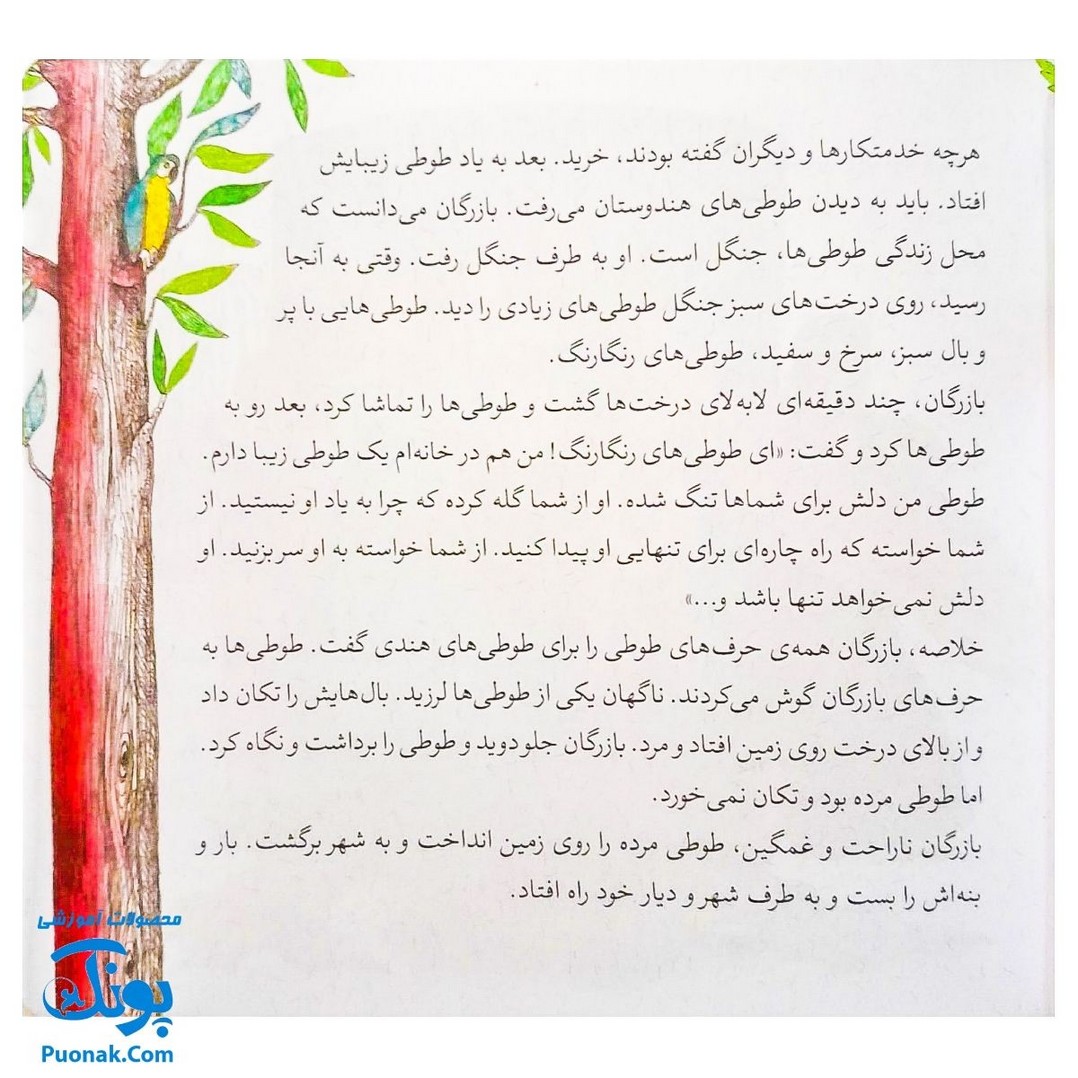 هرچه خدمتکارها و دیگران گفته بودند، خرید. بعد به یاد طوطی زیبایش
افتاد. باید به دیدن طوطی‌های هندوستان می‌رفت. بازرگان می‌دانست که
محل زندگی طوطی‌ها، جنگل است. او به طرف جنگل رفت. وقتی به آنجا
رسید، روی درخت‌های سبز جنگل طوطی‌های زیادی را دید. طوطی‌هایی با پر
و بال سبز، سرخ و سفید، طوطی‌های رنگارنگ.
بازرگان، چند دقیقه‌ای لابه‌لای درخت‌ها گشت و طوطی‌ها را تماشا کرد، بعد رو به
طوطی‌ها کرد و گفت: «ای طوطی‌های رنگارنگ! من هم در خانه‌ام یک طوطی زیبا دارم.
طوطی من دلش برای شماها تنگ شده. او از شما گله کرده که چرا به یاد او نیستید. از
شما خواسته که راه چاره‌ای برای تنهایی او پیدا کنید. از شما خواسته به او سر بزنید. او
دلش نمی‌خواهد تنها باشد و...»
خلاصه، بازرگان همه‌ی حرف‌های طوطی را برای طوطی‌های هندی گفت. طوطی‌ها به
حرف‌های بازرگان گوش می‌کردند. ناگهان یکی از طوطی‌ها لرزید. بال‌هایش را تکان داد
و از بالای درخت روی زمین افتاد و مرد. بازرگان جلو دوید و طوطی را برداشت و نگاه کرد.
اما طوطی مرده بود و تکان نمی‌خورد.
بازرگان ناراحت و غمگین، طوطی مرده را روی زمین انداخت و به شهر برگشت. بار و
بنه‌اش را بست و به طرف شهر و دیار خود راه افتاد.
محصولات آموزشی
پونک
Puonak.Com